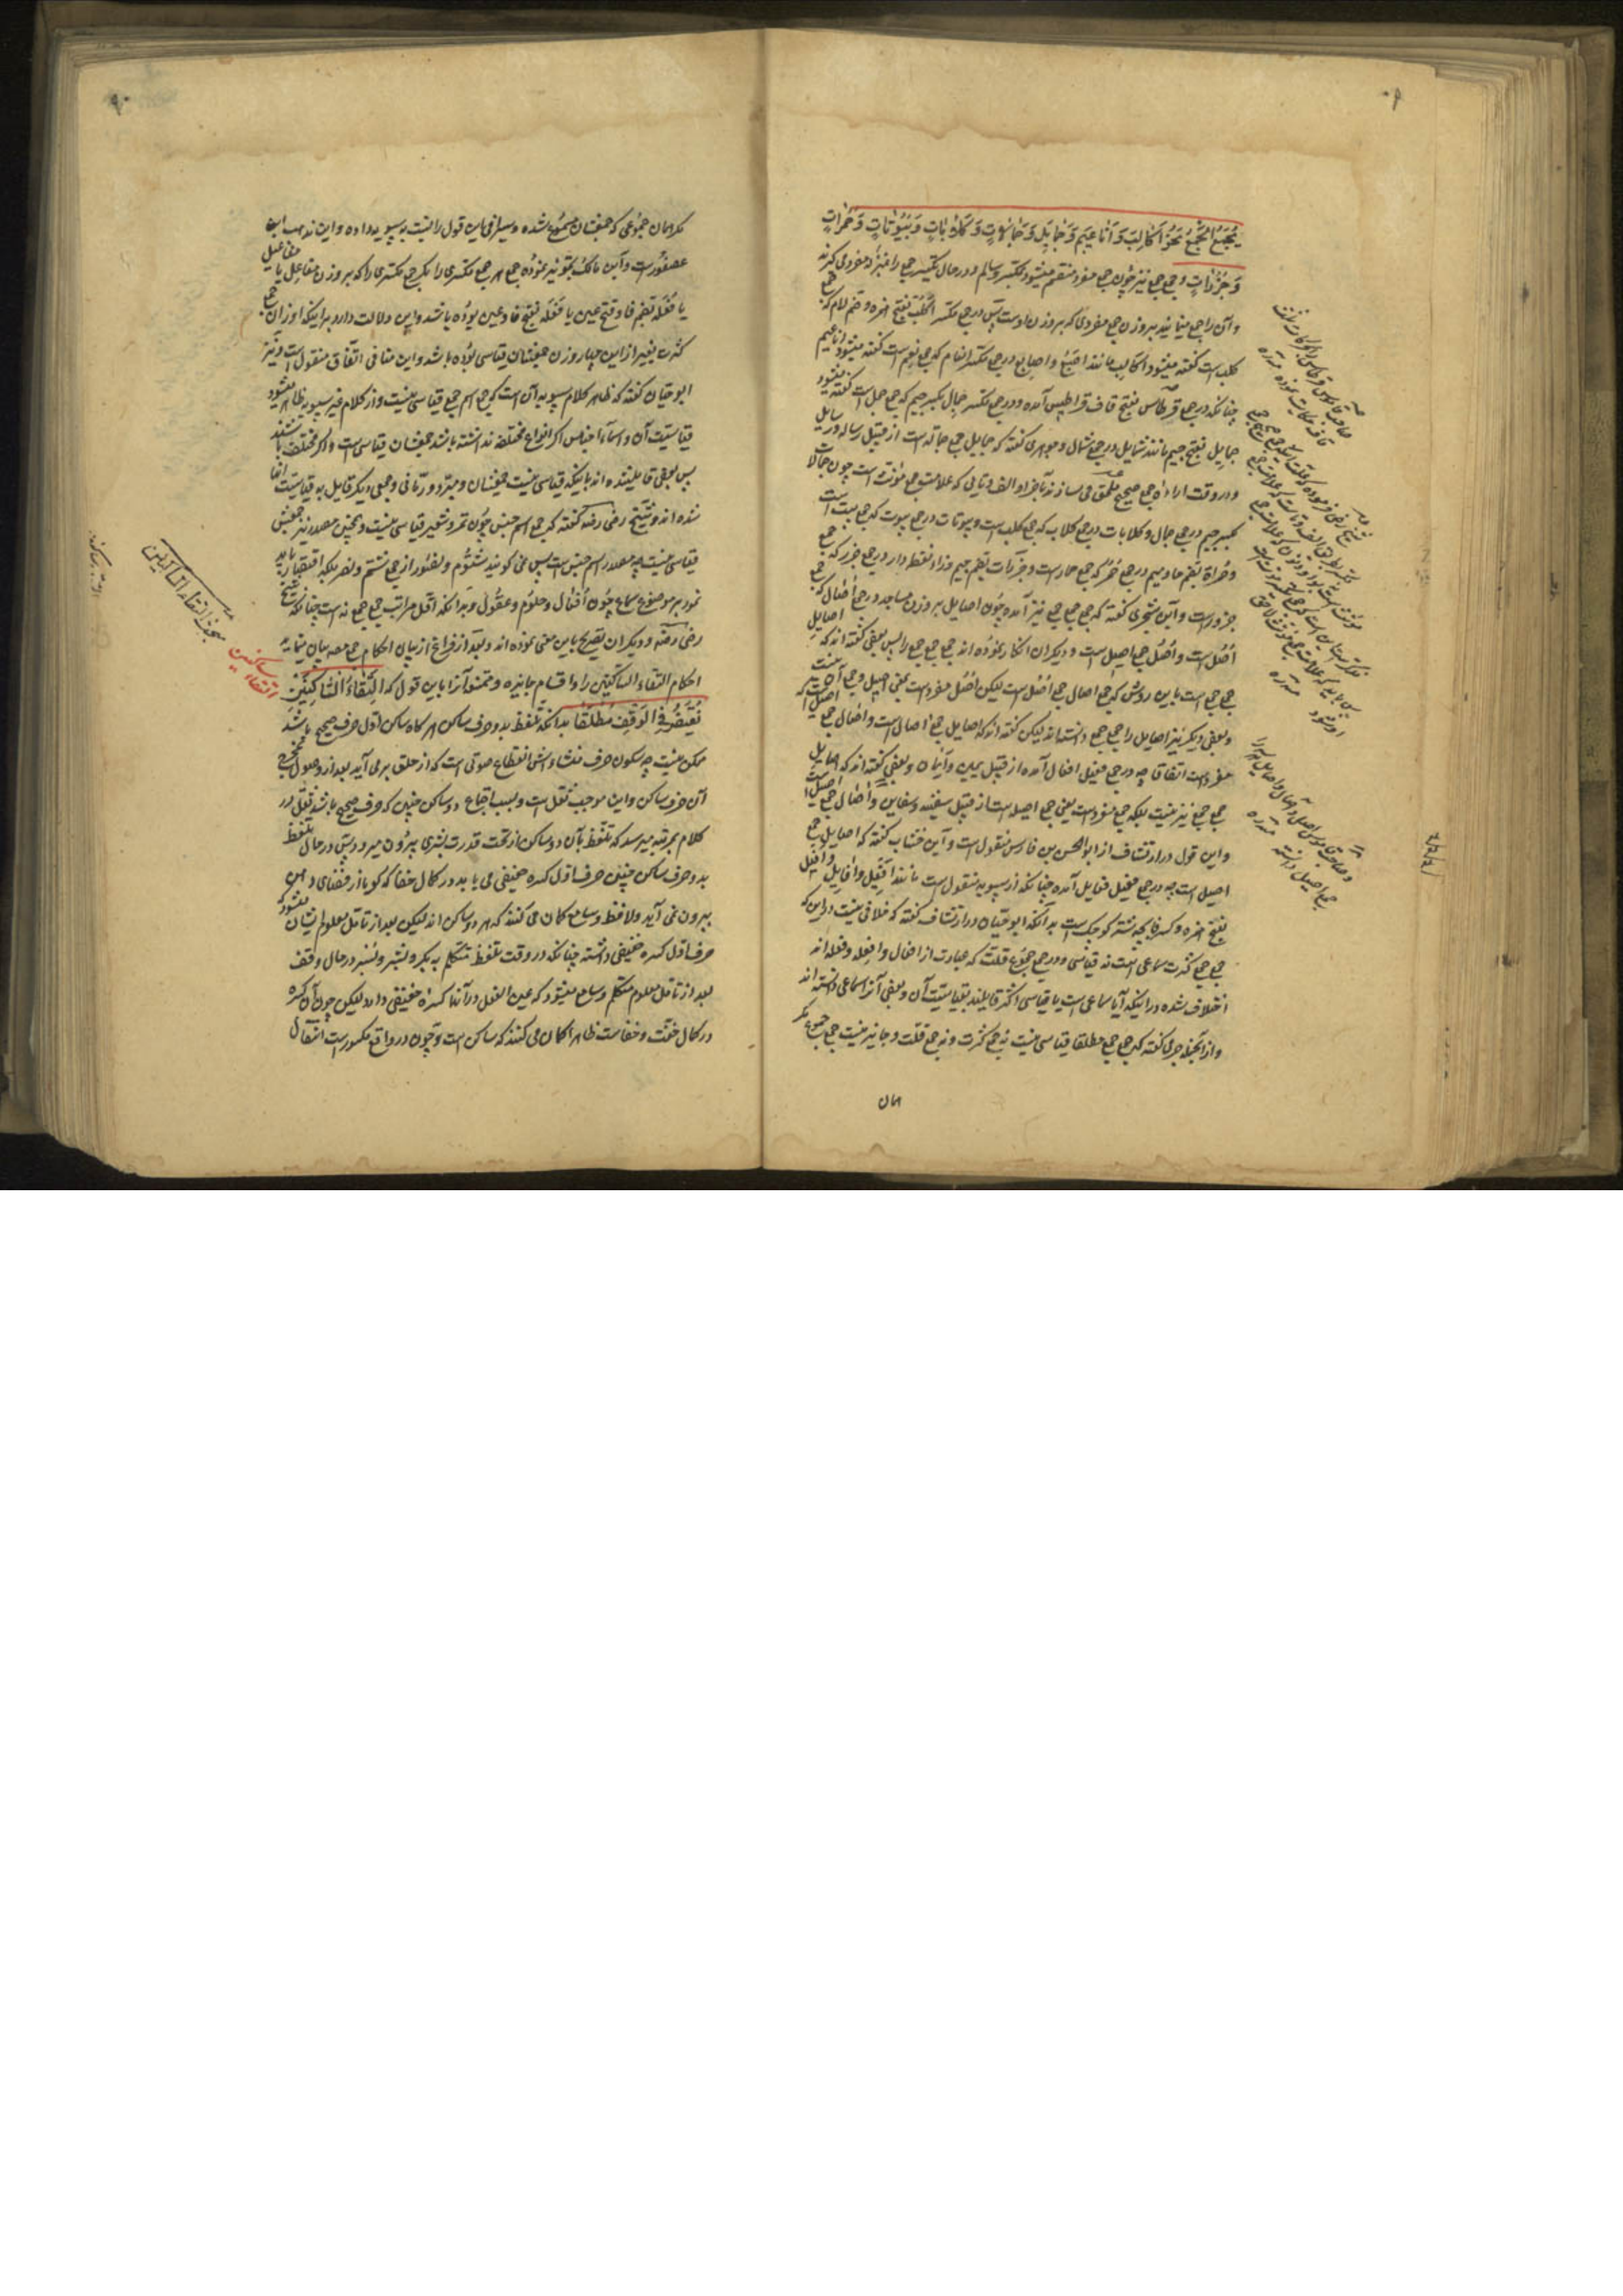 يُجْمَعُ الْجَمْعُ نَحْوُ اَكَالِبَ وَ اَنَاعِيمَ وَ جَمَايِلَ وَ جَمَالاتٍ وَ كِلابَاتٍ وَ بُيُوتَاتٍ وَ حُمُرَاتٍ
وَ جُزُرَاتٍ و جمع جمع نیز چون جمع مفرد منقسم میشود بمکسر و سالم و در حال تکسیر جمع را منزله مفرد می کنند
و آن را جمع مینمایند بر وزن جمع مفردی که بر وزن اوست پس در جمع مکسر اَكْلُب بفتح همزه و ضم لام که جمع
کلب است گفته میشود اکالب مانند اصبع و اصابع و در جمع مکسر انعام که جمع نعم است گفته میشود اناعیم
چنانکه در جمع قرطاس بفتح قاف قراطیس آمده و در جمع مکسر جمال بکسر جیم که جمع جمل است گفته میشود
جمایل بفتح جیم مانند شمایل در جمع شمال و جوهری گفته که جمایل جمع جماله است از قبیل رساله و رسایل
و در وقت اراده جمع صحیح ملحق می سازند بآخر او الف و تایی که علامت جمع مؤنث است چون جمالات
بکسر جیم در جمع جمال و کلابات در جمع کلاب که جمع کلب است و بیوتات در جمع بیوت که جمع بیت است
و حمرات بضم حا و میم در جمع حمر که جمع حمار است و جزرات بضم جیم و زاء نقطه دار در جمع جزر که جمع
جزور است و ابن شجری گفته که جمع جمع جمع نیز آمده چون اصایل بر وزن مساجد در جمع آصال که جمع
اُصُل است و اُصُل جمع اصیل است و دیگران انکار نموده اند جمع جمع جمع را پس بعضی گفته اند که اصایل
جمع جمع است باین روش که جمع آصال جمع اُصُل است لیکن اُصُل مفرد است بمعنی اصیل و جمع آن نیست
و بعضی دیگر نیز اصایل را جمع جمع دانسته اند لیکن گفته اند که اصایل جمع آصال است و آصال جمع اصیل است که
مفرد است اتفاقا چه در جمع فعیل افعال آمده از قبیل یمین و ایمان و بعضی گفته اند که اصایل
جمع جمع نیز نیست بلکه جمع مفرد است یعنی جمع اصیله است از قبیل سفینه و سفاین و آصال جمع اصیل است
و این قول در ارتشاف از ابوالحسن بن فارس منقول است و ابن خشاب گفته که اصایل جمع
اصیل است چه در جمع فعیل فعایل آمده چنانکه از سیبویه منقول است مانند افیل و افایل و افیل
بفتح همزه و کسر فا بچه شتر کوچک است بدانکه ابوحیان در ارتشاف گفته که خلافی نیست در این که
جمع جمع کثرت سماعی است نه قیاسی و در جمع جموع قلت که عبارت از افعال و افعله و فعله اند
اختلاف شده در اینکه آیا سماعی است یا قیاسی اکثر قایلند بقیاسیت آن و بعضی آنرا سماعی دانسته اند
و از آنجمله جرمی گفته که جمع جمع مطلقا قیاسی نیست نه جمع کثرت و نه جمع قلت و جایز نیست جمع جموع مگر
همان
مگر همان جموعی که جمعشان مسموع شده و سیرافی این قول را نسبت بسیبویه داده و این مذهب ابن
عصفور است و ابن مالک تجویز نموده جمع هر جمع مکسری را مگر جمع مکسری را که بر وزن مفاعل یا مفاعیل
یا فُعَلَه بضم فا و فتح عین یا فَعَلَه بفتح فا و عین بوده باشد و این دلالت دارد بر اینکه اوزان جمع
کثرت بغیر از این چهار وزن جمعشان قیاسی بوده باشد و این منافی اتفاق منقول است و نیز
ابوحیان گفته که ظاهر کلام سیبویه آن است که جمع اسم جمع قیاسی نیست و از کلام غیر سیبویه ظاهر میشود
قیاسیت آن و اسماء اجناس اگر انواع مختلفه نداشته باشد جمعشان قیاسی است و اگر مختلف باشند
پس بعضی قایل شده اند باینکه قیاسی نیست جمعشان و مبرد و رمانی و جمعی دیگر قایل به قیاسیت آنها
شده اند و شیخ رضی رضه گفته که جمع اسم جنس چون تمر و شعیر قیاسی نیست و همچنین مصدر نیز جمعش
قیاسی نیست چه مصدر اسم جنس است پس نمی گویند شتوم و نصور از جمع شتم و نصر بلکه اقتصار باید
نمود بر موضع سماع چون اشغال و حلوم و عقول و بدانکه اقل مراتب جمع جمع نه است چنانکه شیخ
رضی رضه و دیگران تصریح باین معنی نموده اند و بعد از فراغ از بیان احکام جمع مصه بیان مینماید
احکام التقاء الساکنین را و اقسام جایزه و ممتنعه آنرا باین قول که اِلْتِقَاءُ السَّاكِنَيْنِ
يُغْتَفَرُ فِي الْوَقْفِ مُطْلَقًا بدانکه تلفظ بدو حرف ساکن هر گاه ساکن اول حرف صحیح باشد
ممکن نیست چه سکون حرف منشاء اش انقطاع صوتی است که از حلق بر می آید بعد از وصول بمخرج
آن حرف ساکن و این موجب ثقل است و بسبب اجتماع دو ساکن چنین که حرف صحیح باشد ثقل در
کلام بمرتبه میرسد که تلفظ بآن دو ساکن از تحت قدرت بشری بیرون میرود پس در حال تلفظ
بدو حرف ساکن چنین حرف اول کسره خفیفی می یابد در کمال خفا که گویا از فضای دهن
بیرون نمی آید و لافظ و سامع گمان می کنند که هر دو ساکن اند لیکن بعد از تامل معلوم ایشان میشود که
حرف اول کسره خفیفی داشته چنانکه در وقت تلفظ متکلم به بکر و بشر و بُسر در حال وقف
بعد از تامل معلوم متکلم و سامع میشود که عین الفعل در آنها کسره خفیفی دارد لیکن چون آن کسره
در کمال خفت و خفاست ظاهرا گمان می کنند که ساکن است و چون در واقع مکسور است انتقال
مبحث التقاء الساکنین
التقاء ساکنین